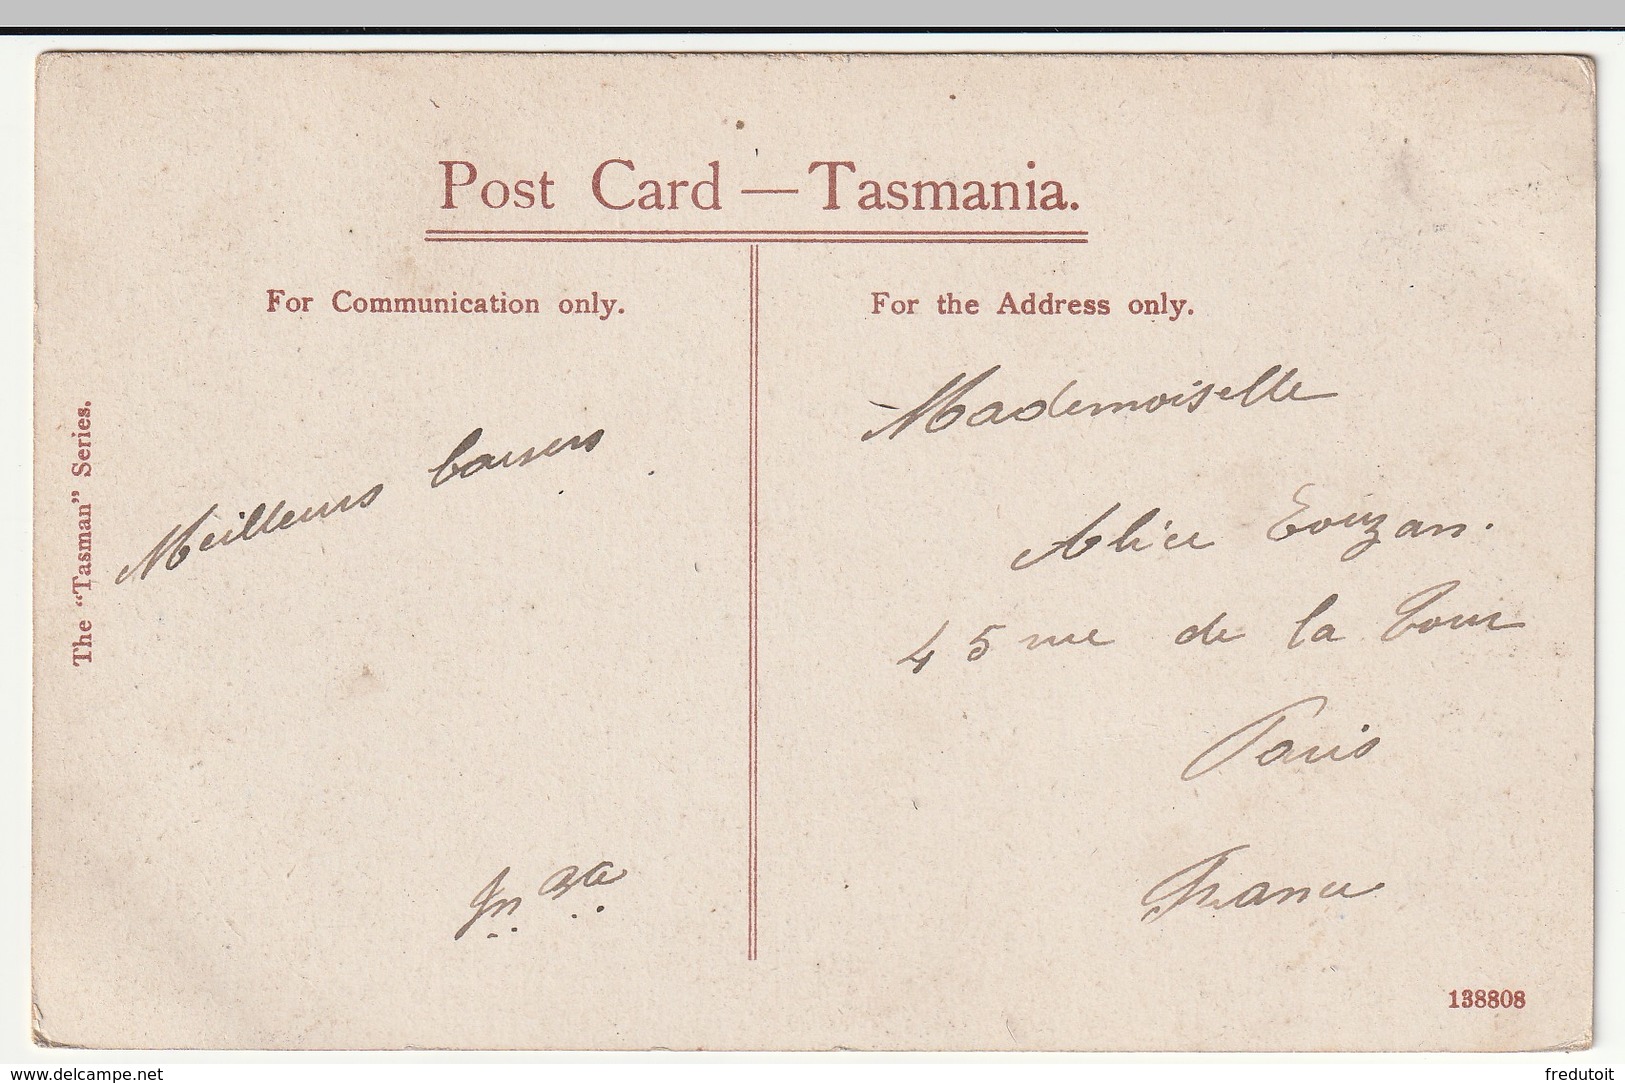 Post Card — Tasmania.
For Communication only.
For the Address only.
The "Tasman" Series.
Meilleurs baisers
Mademoiselle
Alice Touzan.
45 rue de la Tour
Paris
France
138808
www.delcampe.net
fredutoit